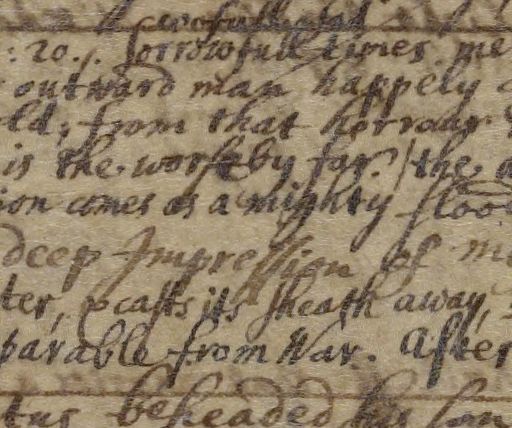 : 20. Sorrowfull times me
outward man happely
ld, from that horrour
is the worst by far. / the
ion comes as a mighty floo
deep Impression of
ter, casts its sheath away,
parable from War. After
tus beheaded his son